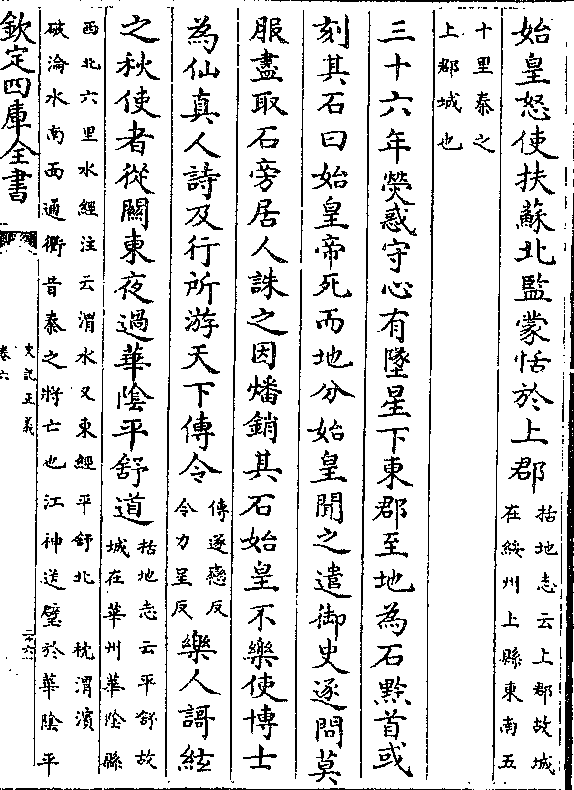 始皇怒使扶蘇北監蒙恬於上郡括地志云上郡故城在綏州上縣東南五
十里秦之上郡城也
三十六年熒惑守心有墜星下東郡至地為石黔首或
刻其石曰始皇帝死而地分始皇聞之遣御史逐問莫
服盡取石旁居人誅之因燔銷其石始皇不樂使博士
為仙真人詩及行所游天下傳令傳逐戀反令力呈反樂人謌絃
之秋使者從關東夜過華隂平舒道括地志云平舒故城在華州華隂縣
西北六里水經注云渭水又東經平舒北枕渭濱破淪水南面通衢昔秦之將亡也江神送璧於華隂平
欽定四庫全書
史記正義
卷六